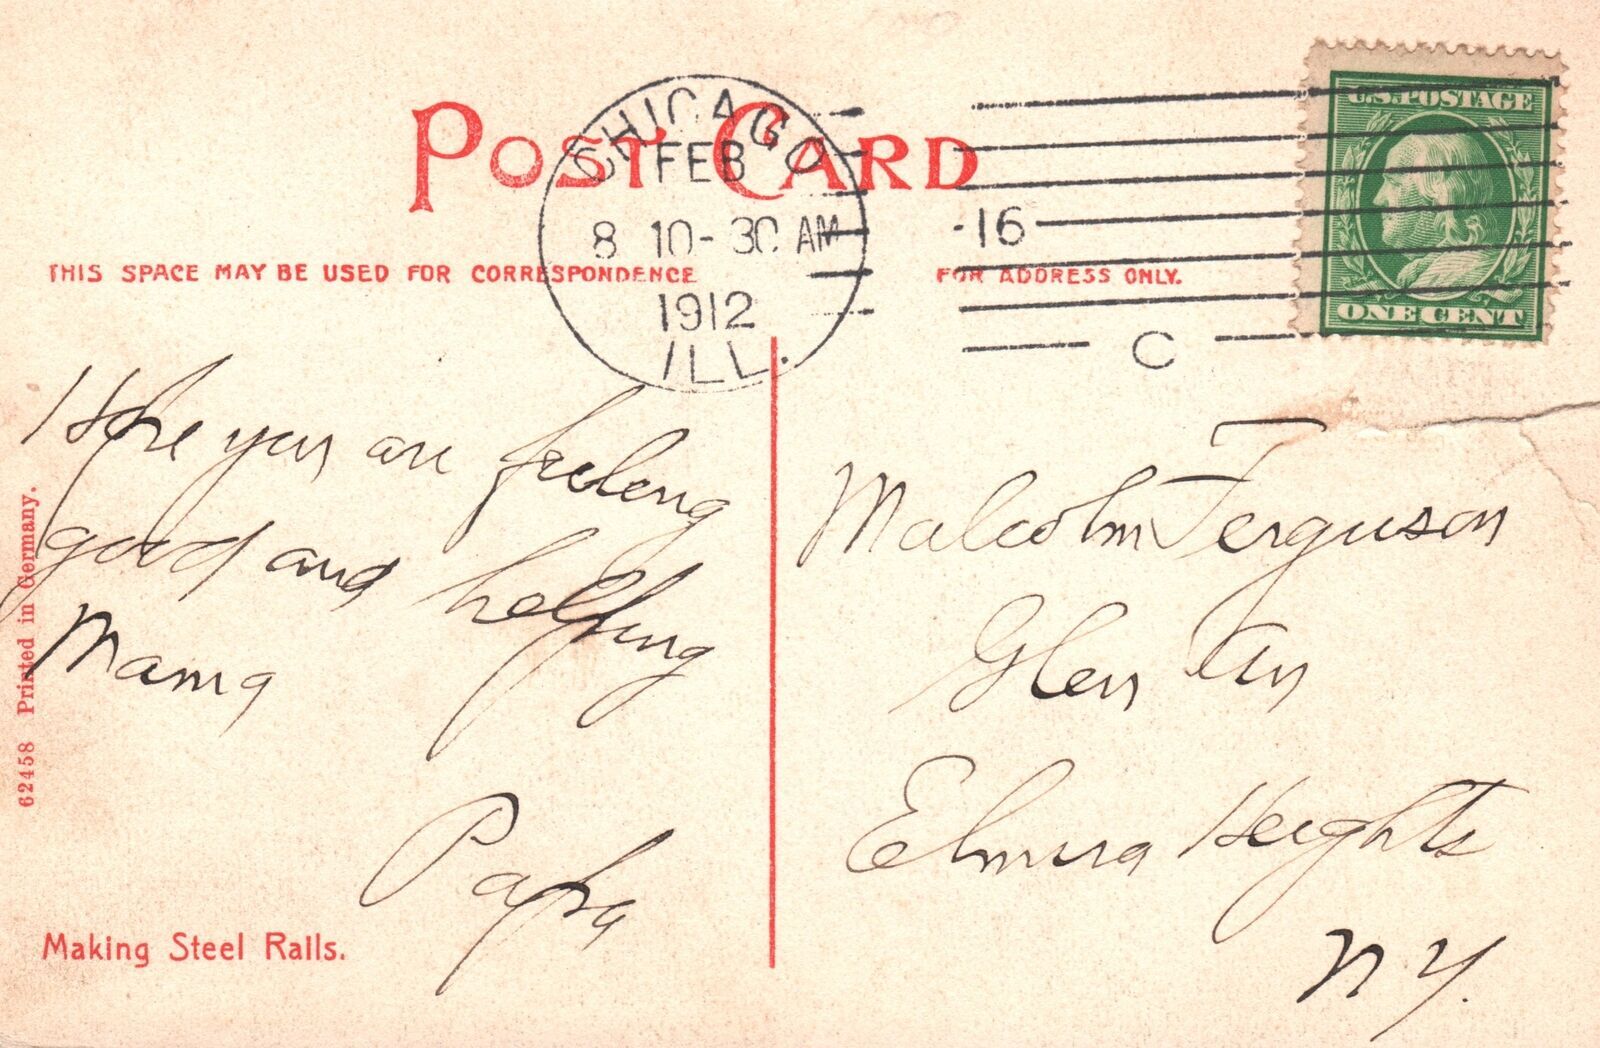 POST CARD
CHICAGO
FEB
8 10-30 AM
1912
ILL.
-16
C
U.S. POSTAGE
ONE CENT
THIS SPACE MAY BE USED FOR CORRESPONDENCE
FOR ADDRESS ONLY.
Hope you are feeling
good and helping
Mama
Papa
Malcolm Ferguson
Glen Av
Elmira Heights
N Y.
Making Steel Rails.
62458 Printed in Germany.